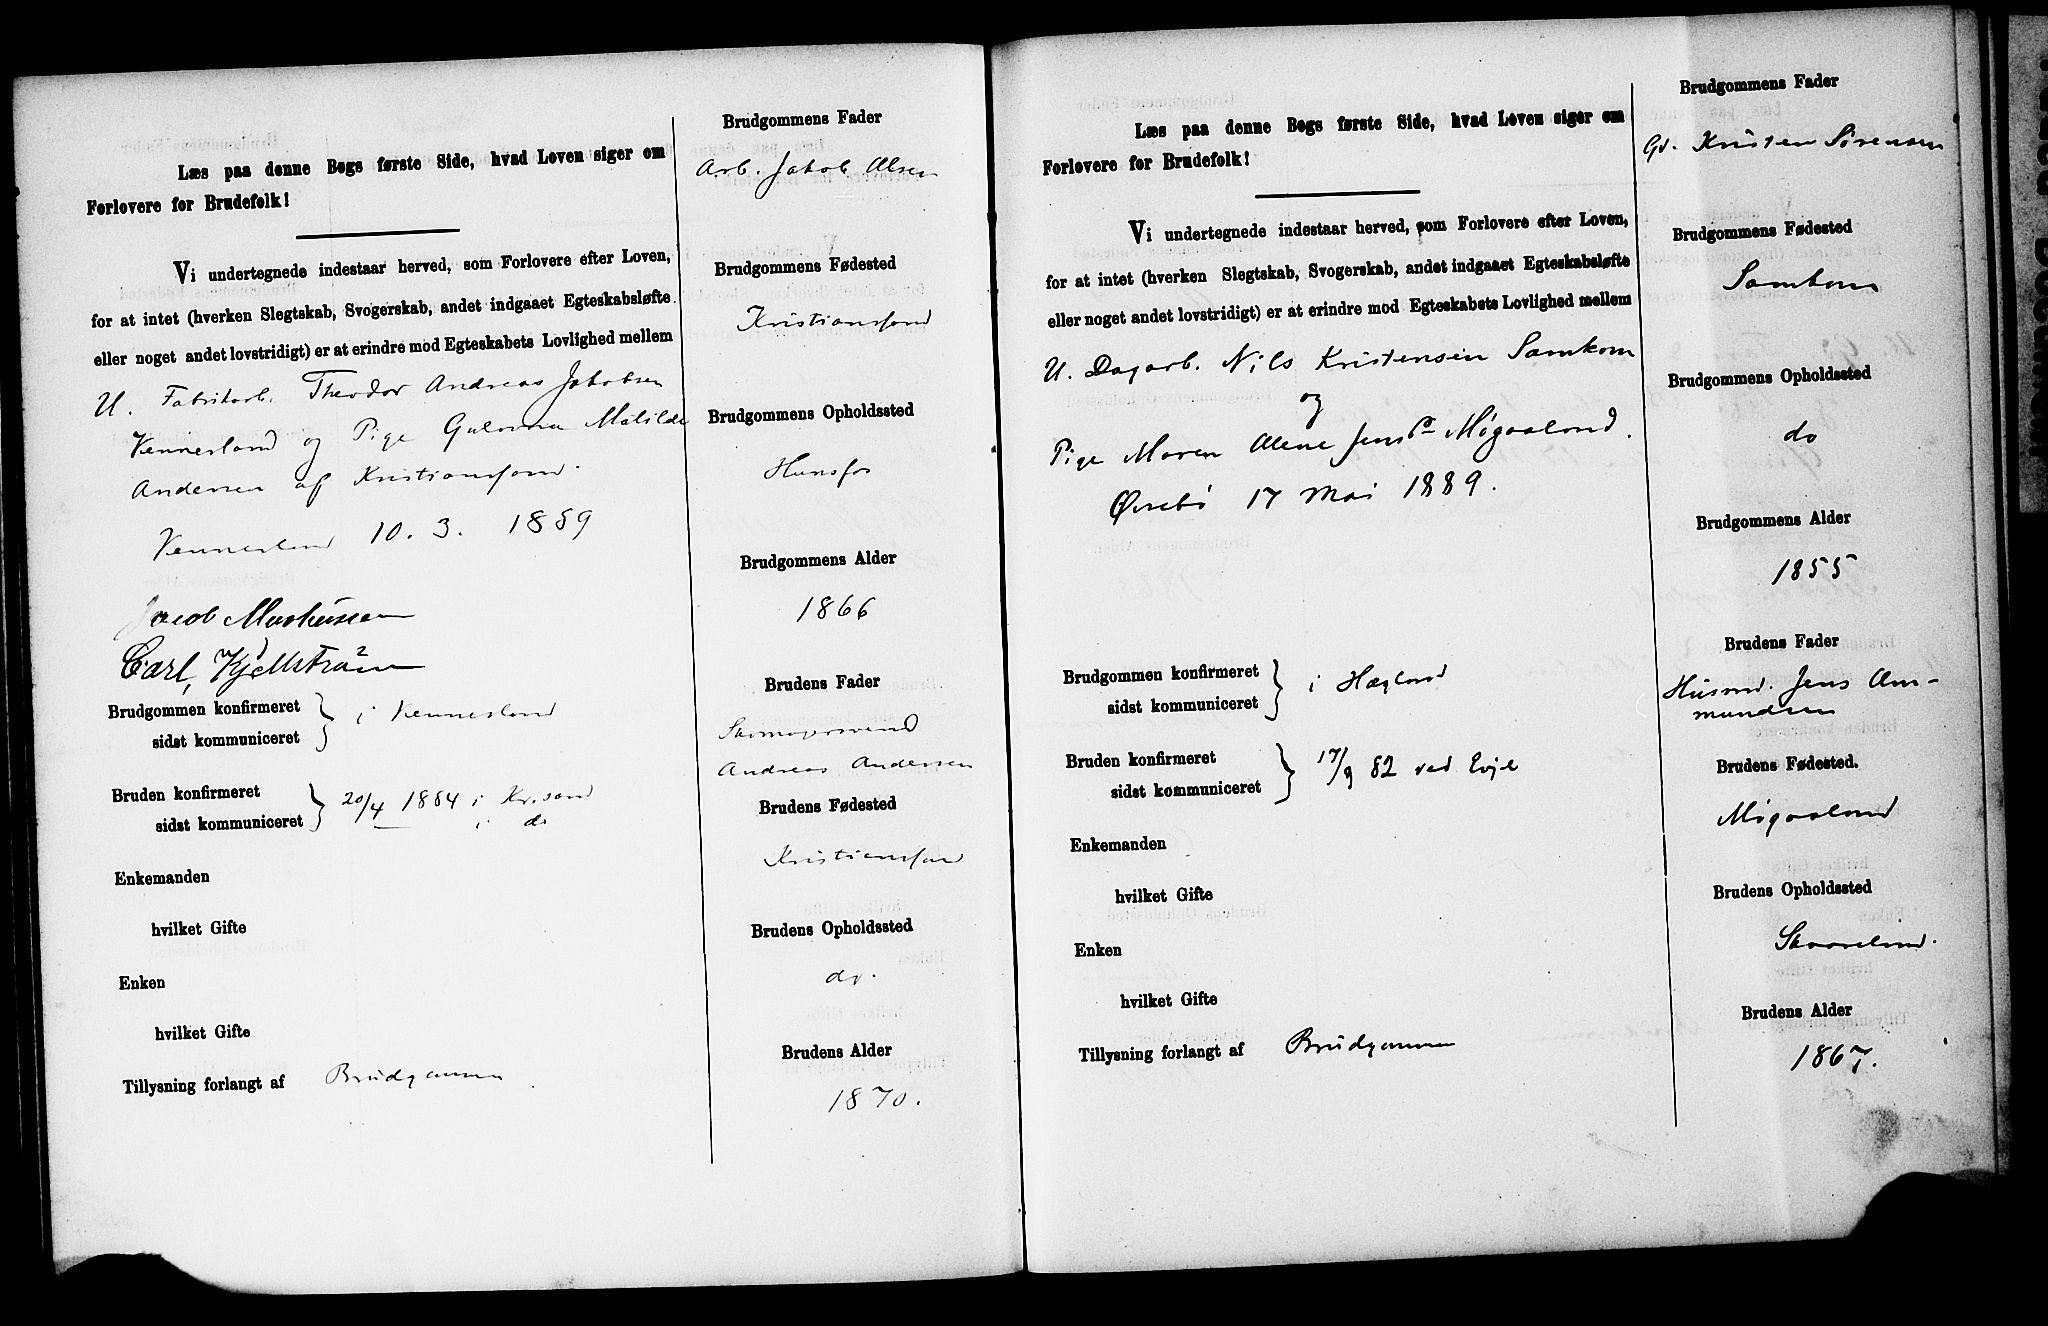 Læs paa denne Bogs første Side, hvad Loven siger om
Forlovere for Brudefolk!
Vi undertegnede indestaar herved, som Forlovere efter Loven,
for at intet (hverken Slegtskab, Svogerskab, andet indgaaet Egteskabsløfte
eller noget andet lovstridigt) er at erindre mod Egteskabets Lovlighed mellem
U. Fabrikarb. Theodor Andreas Jakobsen
Vennesland og Pige Gulovna Matilde
Andersen af Kristianssand.
Vennesland 10. 3. 1889
Jacob Markussen
Carl Kjellstrøm
Brudgommen konfirmeret
sidst kommuniceret } i Vennesland
Bruden konfirmeret
sidst kommuniceret } 20/4 1884 i Kr.sand
i do
Enkemanden
hvilket Gifte
Enken
hvilket Gifte
Tillysning forlangt af Brudgommen
Brudgommens Fader
Arb. Jakob Olsen
Brudgommens Fødested
Kristianssand
Brudgommens Opholdssted
Hunsfos
Brudgommens Alder
1866
Brudens Fader
Skomagersvend
Andreas Andersen
Brudens Fødested
Kristianssand
Brudens Opholdssted
do.
Brudens Alder
1870.
Læs paa denne Bogs første Side, hvad Loven siger om
Forlovere for Brudefolk!
Vi undertegnede indestaar herved, som Forlovere efter Loven,
for at intet (hverken Slegtskab, Svogerskab, andet indgaaet Egteskabsløfte
eller noget andet lovstridigt) er at erindre mod Egteskabets Lovlighed mellem
U. Dagarb. Nils Kristensen Samkom
og
Pige Maren Alene Jensd Møgaaland.
Øvrebø 17 Mai 1889.
Brudgommen konfirmeret
sidst kommuniceret } i Hægland
Bruden konfirmeret
sidst kommuniceret } 17/9 82 ved Evje
Enkemanden
hvilket Gifte
Enken
hvilket Gifte
Tillysning forlangt af Brudgommen
Brudgommens Fader
Gd. Kristen Sørensen
Brudgommens Fødested
Samkom
Brudgommens Opholdssted
do
Brudgommens Alder
1855
Brudens Fader
Husmd. Jens Am-
mundsen
Brudens Fødested.
Møgaaland
Brudens Opholdssted
Skaareland.
Brudens Alder
1867.